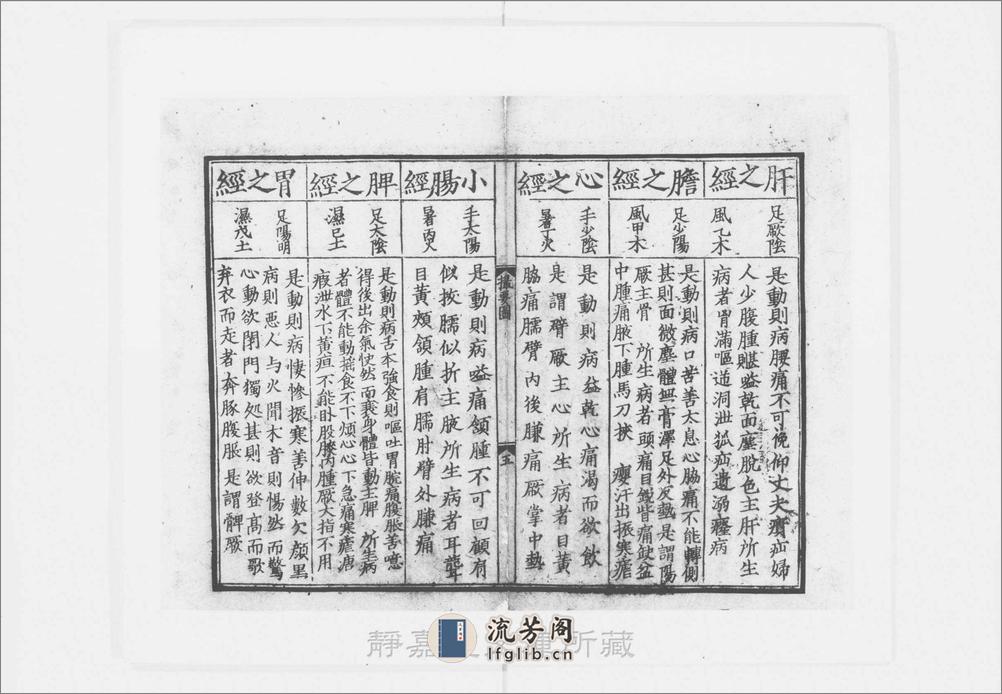 肝之經
足厥陰
風乙木
是動則病腰痛不可俛仰丈夫㿉疝婦
人少腹腫甚嗌乾面塵脫色主肝所生
病者胷滿嘔逆洞泄狐疝遺溺癃病
膽之經
足少陽
風甲木
是動則病口苦善太息心脇痛不能轉側
甚則面微塵體無膏澤足外反熱是謂陽
厥主骨 所生病者頭痛目銳眥痛缺盆
中腫痛腋下腫馬刀挾 癭汗出振寒瘧
心之經
手少陰
暑丁火
是動則病嗌乾心痛渴而欲飲
是謂臂厥主心所生病者目黃
脇痛臑臂內後臁痛厥掌中熱
據要圖
五
小腸經
手太陽
暑丙火
是動則病嗌痛頷腫不可回顧肩
似拔臑似折主液所生病者耳聾
目黃頰頷腫肩臑肘臂外臁痛
脾之經
足太陰
濕己土
是動則病舌本強食則嘔吐胃脘痛腹脹善噫
得後出余氣快然而衰身體皆動主脾 所生病
者體不能動搖食不下煩心心下急痛寒瘧溏
瘕泄水下黃疸不能臥股膝內腫厥大指不用
胃之經
足陽明
濕戊土
是動則病悽慘振寒善伸數欠顏黑
病則惡人与火聞木音則惕然而驚
心動欲閉門獨処甚則欲登高而歌
弃衣而走者奔豚腹脹是謂髀厥
靜嘉 所藏
流芳阁
lfglib.cn